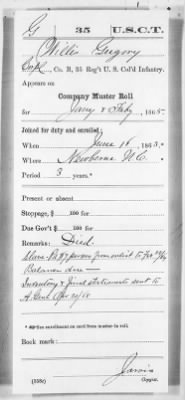 G 35 U.S.C.T.
Willis Gregory
Corpl, Co. B, 35 Reg't U. S. Col'd Infantry.
Appears on
Company Muster Roll
for Jany & Feby, 1865.
Joined for duty and enrolled:
When June 18, 1863.
Where Newberne N.C.
Period 3 years.*
Present or absent
Stoppage, $ 100 for
Due Gov't $ 100 for
Remarks: Died.
Balance due —
Inventory & final statements sent to
* See enrollment on card from muster-in roll.
Book mark:
Jarvis
(358c) Copyist.